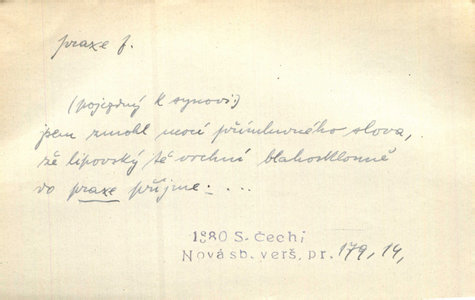 praxe f.
(pojezdný k synovi:)
jsem zmohl mocí přímluvného slova,
že lipovský tě vrchní blahosklonně
do praxe přijme. ...
1880 S. Čech i
Nová sb. verš. pr. 179, 14,